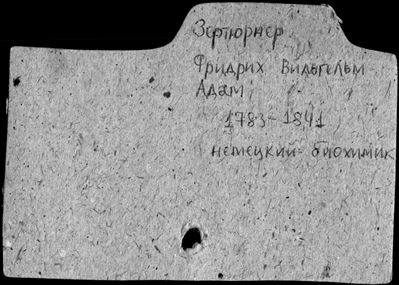 Зертюрнер
Фридрих Вильгельм
Адам
1783-1841
немецкий биохимик